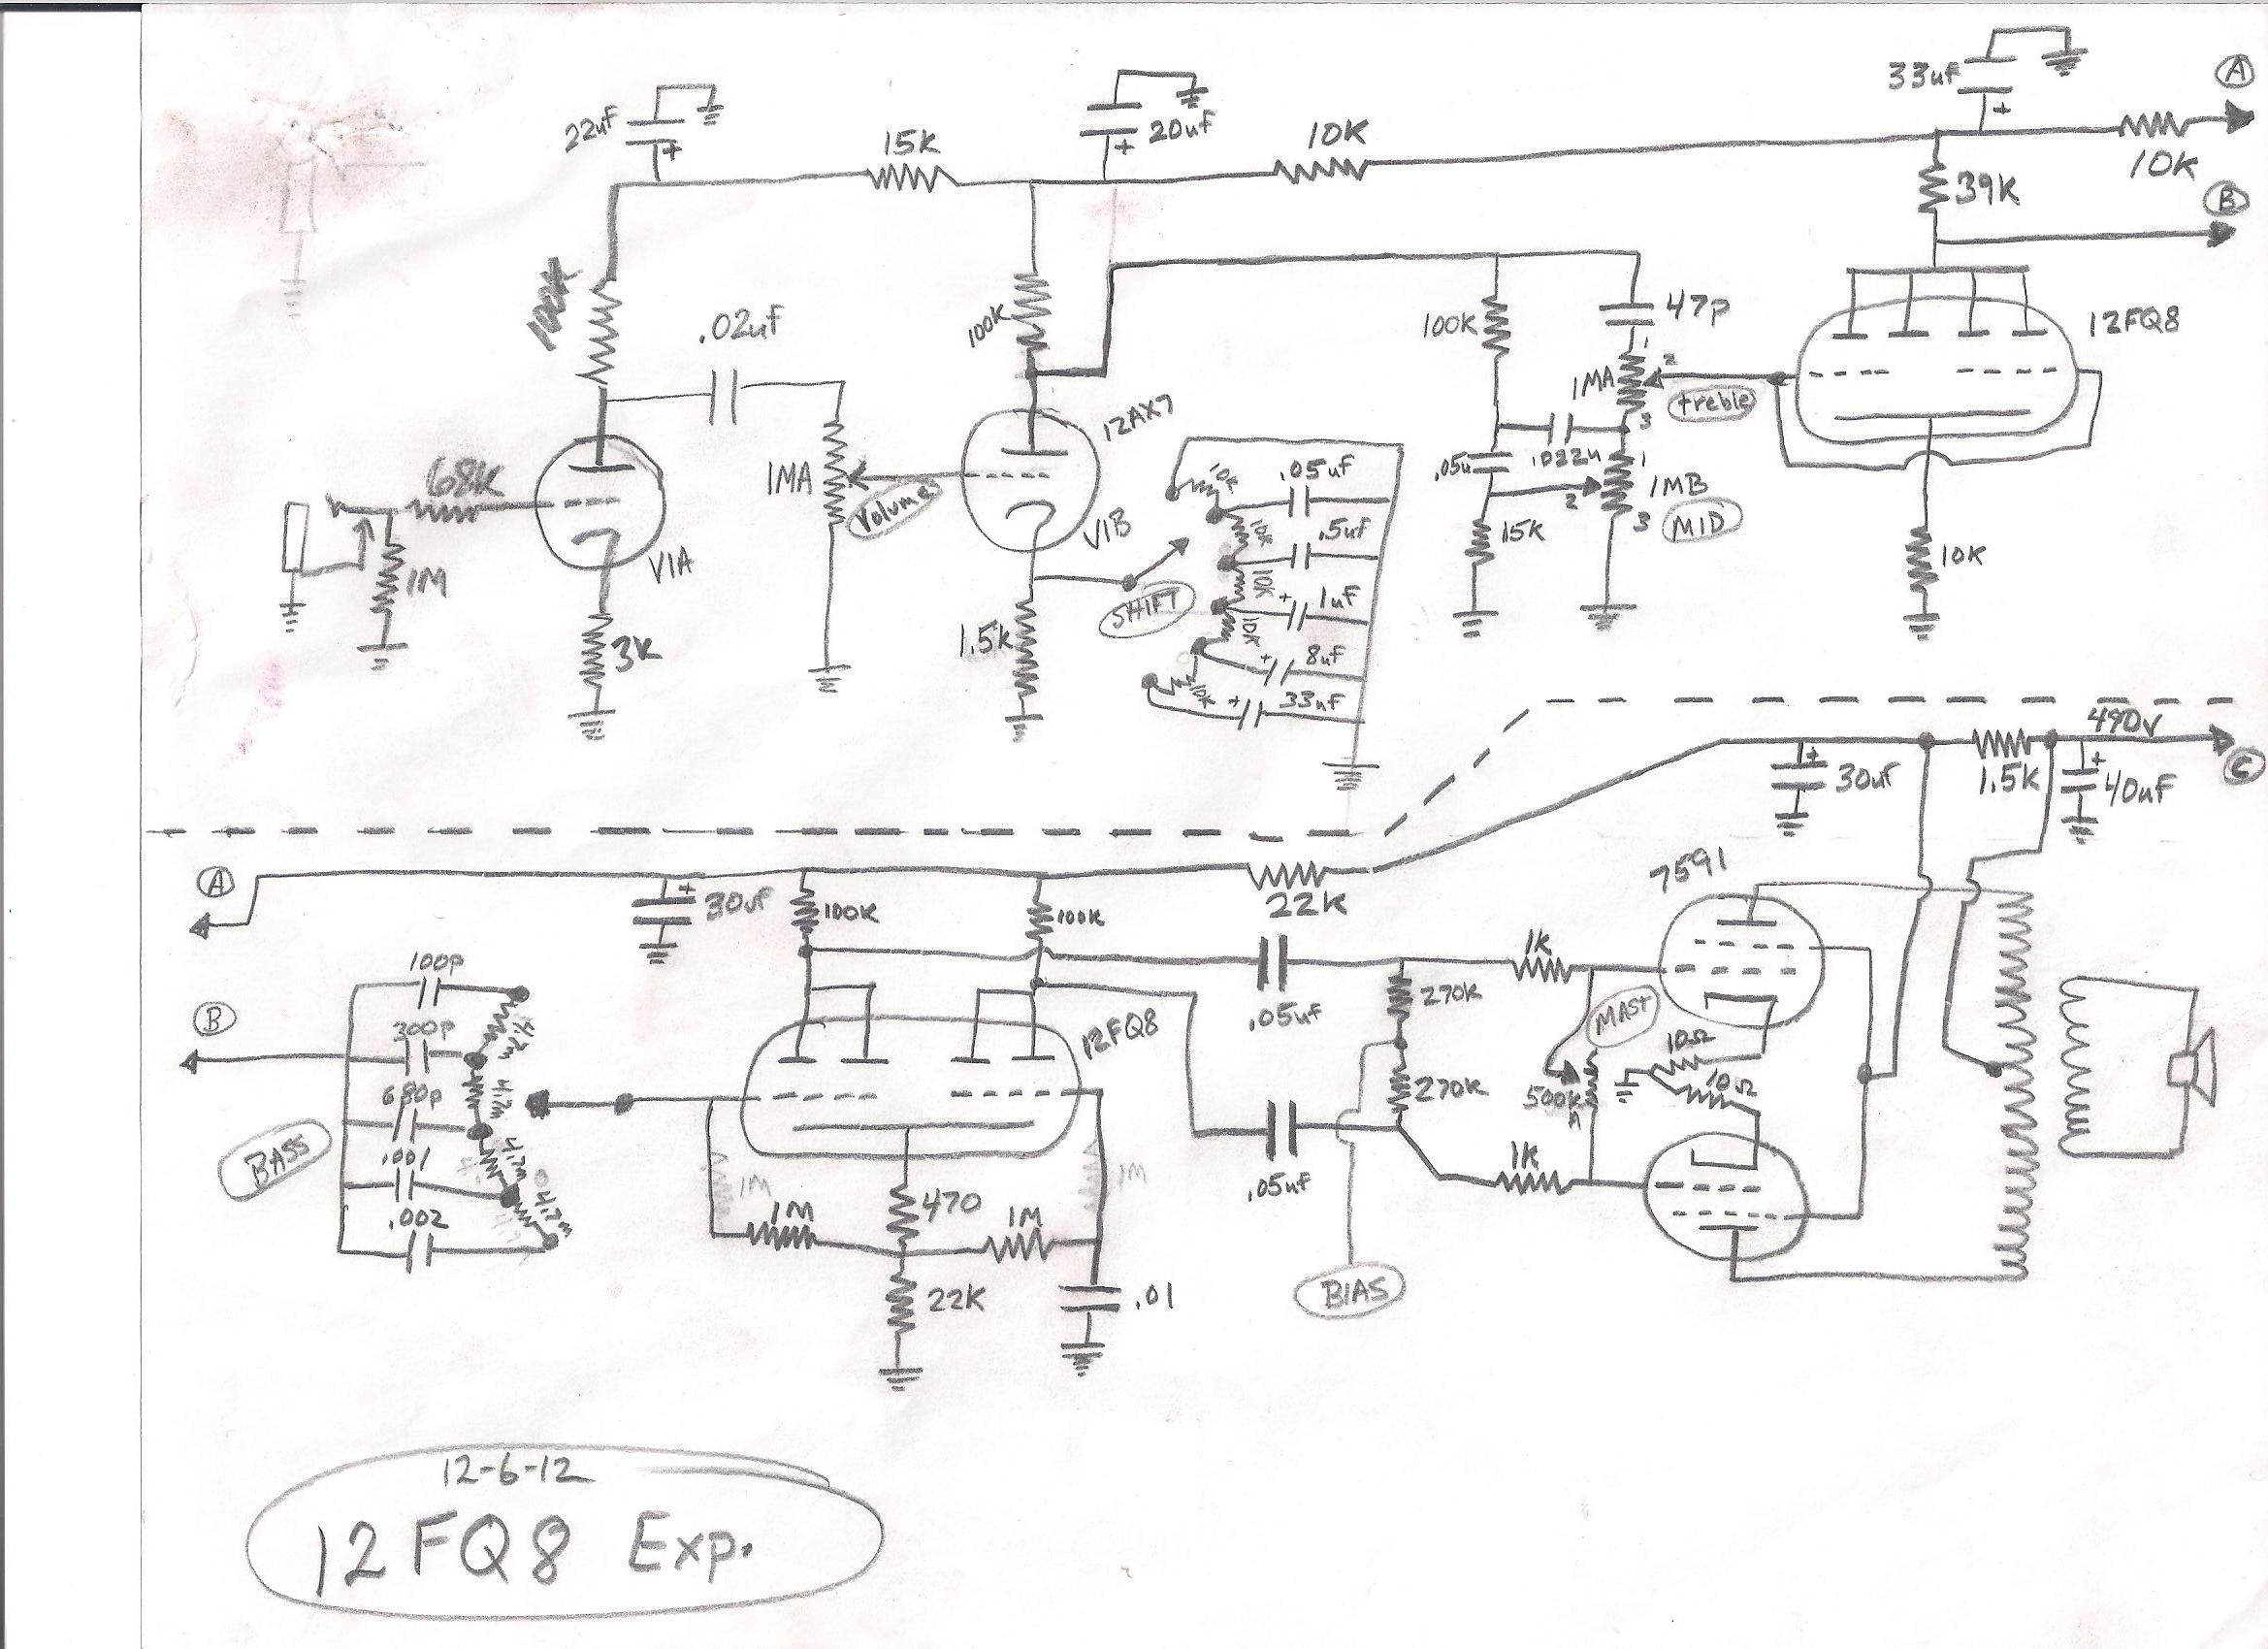 22uf
+
15K
+
20uf
10K
33uf
+
A
10K
39K
B
100K
.02uf
100K
12AX7
100K
47p
1
1MA
2
treble
3
12FQ8
68K
1MA
Volume
V1B
V1A
1M
3K
1.5K
SHIFT
10K
10K
10K
10K
.05uf
.5uf
+
1uf
+
8uf
+
33uf
.05u
.022u
1
2
1MB
3
MID
15K
10K
490v
+
30uf
1.5K
+
40uf
C
A
+
30uf
100K
100K
22K
7591
B
100p
300p
680p
.001
.002
4.7m
4.7m
4.7m
4.7m
BASS
12FQ8
.05uf
.05uf
270K
270K
1K
1K
MAST
500K
A
10Ω
10Ω
1M
1M
1M
1M
470
22K
.01
BIAS
12-6-12
12FQ8 Exp.